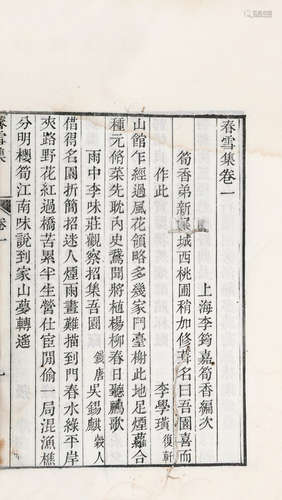 春雪集卷一
上海李筠嘉筍香編次
筍香弟新
城西桃圃稍加修葺名曰吾園喜而
作此
李學璜復軒
山館乍經過風花領略多幾家鬥臺榭此地足煙蘿合
種元脩菜先耽內史鵞聞將植楊柳春日聽鸝歌
雨中李味莊觀察招集吾園
錢唐吳錫麒穀人
借得名園折簡招迷人煙雨畫難描到門春水綠平岸
夾路野花紅過橋苦累半生營仕宦閒偷一局混漁樵
分明櫻筍江南味說到家山夢轉遙
雪集
卷一